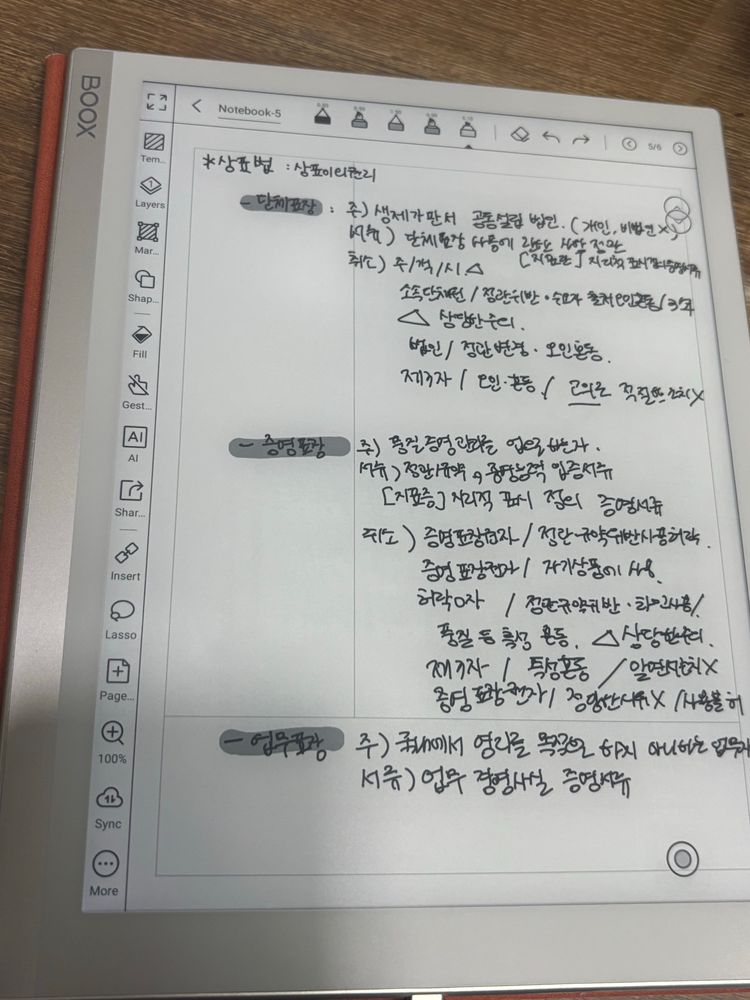 BOOX
Notebook-5
5/6
Tem...
Layers
Mar...
Shap...
Fill
Gest...
AI
AI
Shar...
Insert
Lasso
Page...
100%
Sync
More
*상표법 : 상표이외권리
- 단체표장 : 주) 생제가판서 공동설립 법인. (개인, 비법인 X)
서류) 단체표장 사용에 관한 사항 정관
취소) 주/적/시.△ [지표단] 지리적 표시 정의 증명서류
소속단체원 / 정관위반·수요자 출처오인혼동/
△ 상당한주의.
법인 / 정관변경·오인혼동.
제3자 / 오인·혼동 / 고의로 적절한 조치X
- 증명표장 주) 품질증명관리를 업으로 하는자.
서류) 정관·규약, 증명목적 입증서류
[지표증] 지리적 표시 정의 증명서류
취소) 증명표장권자 / 정관·규약위반사용허락.
증명표장권자 / 자기상품에 사용.
허락0자 / 정관규약위반·
품질 등 특성 혼동. △상당한주의.
제3자 / 특성혼동 / 알면서조치X
증명표장권자 / 정당한사유X / 사용불허
- 업무표장 주) 국내에서 영리를 목적으로 하지 아니하는 업무
서류) 업무 경영사실 증명서류